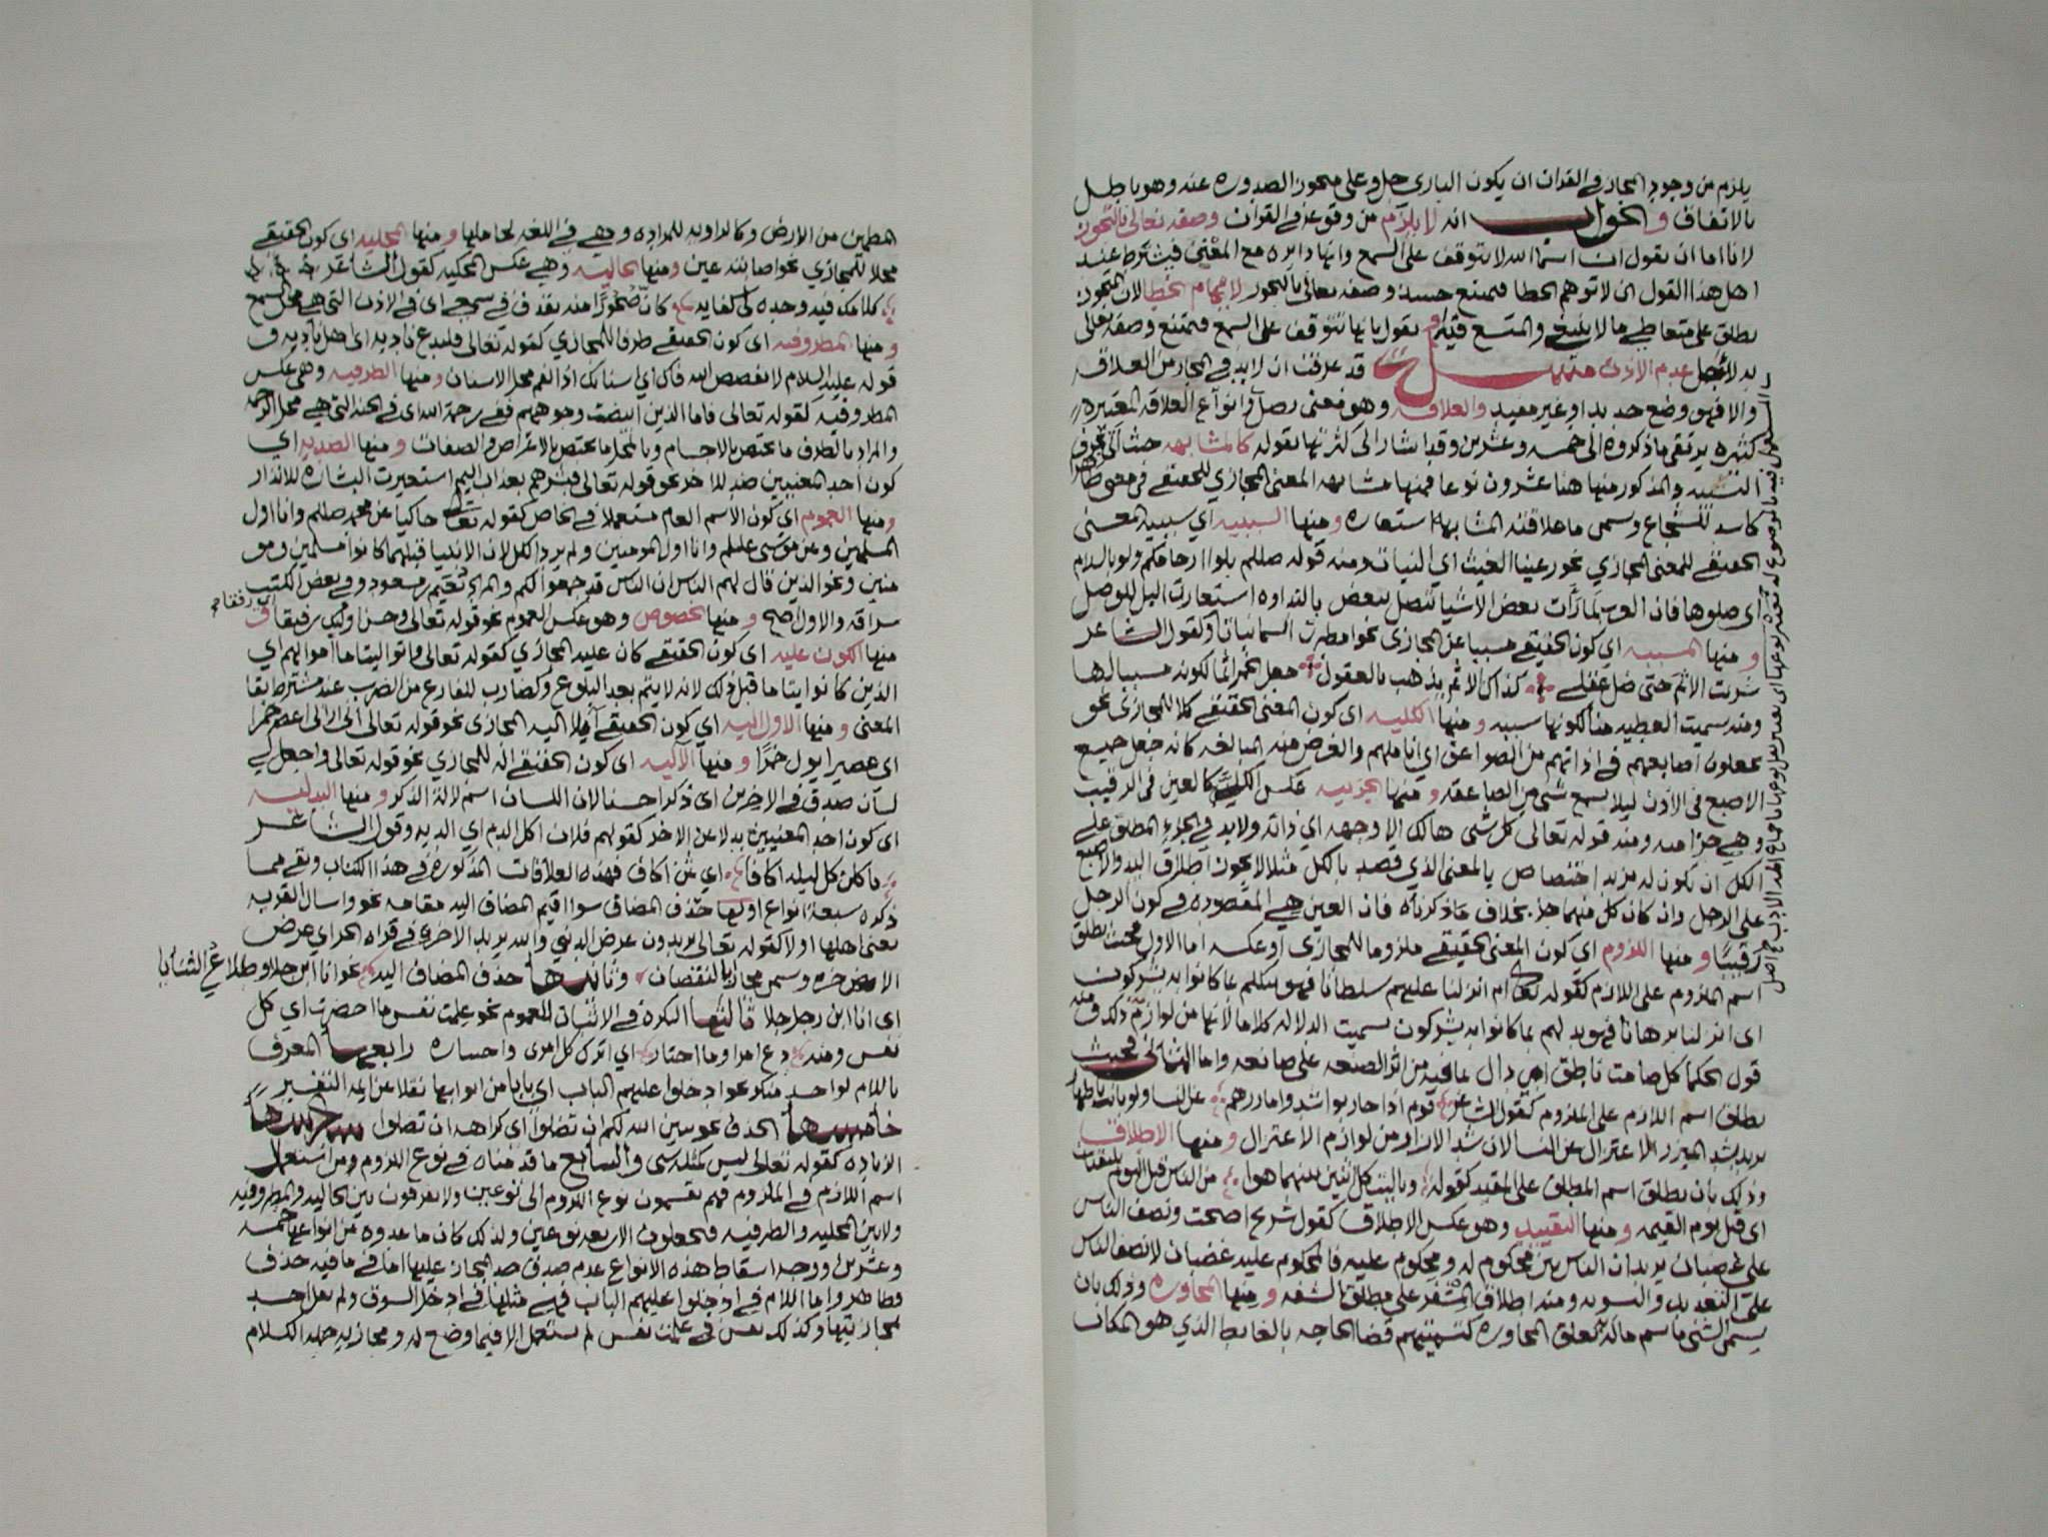 يلزم من وجود المجاز في القران ان يكون الباري جل وعلى متجوز الصدوره عنه وهو باطل
بالاتفاق والجواب انه لا يلزم من وقوعه في القران وصفه تعالى بالتجوز
لانا اما ان نقول ان اسما الله لا تتوقف على السمع وانها دايره مع المعنى فيشترط عند
اهل هذا القول ان لا توهم الخطا فيمتنع حينئذ وصفه تعالى بالتجوز لايهام الخطا لان المتجوز
يطلق على متعاطي ما لا ينبغي والمتسع فيه او نقول بانها تتوقف على السمع فيمتنع وصفه تعالى
به لاجل عدم الاذن مسئلة قد عرفت ان لا بد في المجاز من العلاقه
والا فهو وضع جديد او غير مفيد والعلاقه وهو معنى وصل وانواع العلاقه المعتبره
كثيره يرتقي ما ذكروه الى خمسه وعشرين وقد اشار الى كثرتها بقوله كالمشابهه حيث اتى بحرف
التشبيه والمذكور منها هنا عشرون نوعا فمنها مشابهه المعنى المجازي للحقيقي في معنى ظاهر
كاسد للشجاع وسمى ما علاقته المشابهه استعاره ومنها السببيه اي سببيه المعنى
الحقيقي للمعنى المجازي نحو رعينا الغيث اي النبات ومنه قوله صللم بلوا ارحامكم ولو بالسلام
اي صلوها فان العرب لما رأت بعض الاشيا تتصل ببعض بالنداوه استعارت البل للوصل
ومنها المسببيه اي كون الحقيقي مسببا عن المجازي نحو امطرت السما نباتا وكقول الشاعر
شربت الاثم حتى ضل عقلي كذاك الاثم يذهب بالعقول جعل الخمر اثما لكونه مسببا لها
ومنه سميت العطيه منا لكونها سببه ومنها الكليه اي كون المعنى الحقيقي كلا للمجازي نحو
يجعلون اصابعهم في اذانهم من الصواعق اي اناملهم والغرض منه المبالغه كانه جعل جميع
الاصبع في الاذن ليلا يسمع شي من الصاعقه ومنها الجزييه عكس الكليه كالعين في الرقيب
وهي جزا منه ومنه قوله تعالى كل شي هالك الا وجهه اي ذاته ولا بد في الجزء المطلق على
الكل ان يكون له مزيد اختصاص بالمعنى الذي قصد بالكل مثلا لا يجوز اطلاق اليد والاصبع
على الرجل وان كان كل منهما جزء بخلاف ما ذكرناه فان العين هي المقصوده في كون الرجل
رقيبا ومنها اللزوم اي كون المعنى الحقيقي ملزوما للمجازي او عكسه اما الاول فحيث يطلق
اسم الملزوم على اللازم كقوله تعالى ام انزلنا عليهم سلطانا فهو يتكلم بما كانوا به يشركون
اي انزلنا برهانا فهو يدلهم بما كانوا به يشركون سميت الدلاله كلاما لانها من لوازمه ومنه
قول الحكما كل صامت ناطق اي دال بما فيه من اثر الصنعه على صانعه واما الثاني فحيث
يطلق اسم اللازم على الملزوم كقول الشاعر قوم اذا حاربوا شدوا مازرهم عن النسا ولو باتت باطهار
يريد بشد الميزر الاعتزال عن النسا لان شد الازار من لوازم الاعتزال ومنها الاطلاق
وذلك بان يطلق اسم المطلق على المقيد كقوله ويا ليت كل اثنين بينهما هوا من الناس قبل اليوم يلتقيان
اي قبل يوم القيمه ومنها التقييد وهو عكس الاطلاق كقول شريح اصبحت ونصف الناس
علي غضبان يريد ان الناس بين محكوم له ومحكوم عليه فالمحكوم عليه غضبان لا نصف الناس
على التعديل والتسويه ومنه اطلاق المشفر على مطلق الشفه ومنها المجاوره وذلك بان
يسمى الشي باسم ما له تعلق المجاوره كتسميتهم قضا الحاجه بالغايط الذي هو المكان
المطمين من الارض وكالراويه للمزاده وهي في اللغه لحاملها ومنها المحليه اي كون الحقيقي
محلا للمجازي نحو اصابته عين ومنها الحاليه وهي عكس المحليه كقول الشاعر
اي في الاذن التي هي محل السمع
ومنها المظروفيه اي كون الحقيقي ظرفا للمجازي كقوله تعالى فليدع ناديه اي اهل ناديه و
قوله عليه السلام لا يفضض الله فاك اي اسنانك اذ الفم محل الاسنان ومنها الظرفيه وهي عكس
المظروفيه كقوله تعالى فاما الذين ابيضت وجوههم ففي رحمة الله اي في الجنه التي هي محل الرحمه
والمراد بالظرف ما يختص بالاجسام وبالمحل ما يختص بالاعراض والصفات ومنها الضديه اي
كون احد المعنيين ضد للاخر نحو قوله تعالى فبشرهم بعذاب اليم استعيرت البشاره للانذار
ومنها العموم اي كون الاسم العام مستعملا في الخاص كقوله تعالى حاكيا عن محمد صللم وانا اول
المسلمين وعن موسى علالم وانا اول المومنين ولم يرد الكل لان الانبيا قبلهما كانوا مسلمين ومو
منين ونحو الذين قال لهم الناس ان الناس قد جمعوا لكم والمراد نعيم بن مسعود وفي بعض الكتب
سراقه والاول اصح ومنها الخصوص وهو عكس العموم نحو قوله تعالى وحسن اوليك رفيقا اي رفقا و
منها الكون عليه اي كون الحقيقي كان عليه المجازي كقوله تعالى واتوا اليتاما اموالهم اي
الذين كانوا يتاما قبل ذلك لانه لا يتم بعد البلوغ وكضارب لفارغ من الضرب عند مشترط بقا
المعنى ومنها الاوليه اي كون الحقيقي آيلا اليه المجازي نحو قوله تعالى اني اراني اعصر خمرا
اي عصيرا يول خمرا ومنها الآليه اي كون الحقيقي اله للمجازي نحو قوله تعالى واجعل لي
لسان صدق في الاخرين اي ذكرا حسنا لان اللسان اسم لالة الذكر ومنها البدليه
اي كون احد المعنيين بدلا عن الاخر كقولهم فلان اكل الدم اي الديه وقول الشاعر
ياكلن كل ليله اكافا اي ثمن اكاف فهذه العلاقات المذكوره في هذا الكتاب وبقي مما
ذكره سبعة انواع اولها حذف المضاف سوا اقيم المضاف اليه مقامه نحو واسال القريه
يعني اهلها اولا كقوله تعالى يريدون عرض الدنيا والله يريد الاخره في قراه الجر اي عرض
الاخره وسمي مجازا بالنقصان وثانيها حذف المضاف اليه نحو انا ابن جلا وطلاع الثنايا
اي انا ابن رجل جلا ثالثها النكره في الاثبات للعموم نحو علمت نفس ما احضرت اي كل
نفس ومنه دع امرا وما اختار اي اترك كل امرى واختياره رابعها المعرف
باللام لواحد منكر نحو ادخلوا عليهم الباب اي بابا من ابوابها نقلا عن ايمه التفسير
خامسها الحذف نحو يبين الله لكم ان تضلوا اي كراهه ان تضلوا سادسها
الزياده كقوله تعالى ليس كمثله شي والسابع ما قدمناه في نوع اللزوم ومن استعمال
اسم اللازم في الملزوم فهم يقسمون نوع اللزوم الى نوعين ولا يفرقون بين الحاليه والمظروفيه
ولا بين المحليه والظرفيه فيجعلون الاربعه نوعين ولذلك كان ما عدوه من انواعها خمسه
وعشرين ووجه اسقاط هذه الانواع عدم صدق حد المجاز عليها اما في ما فيه حذف
فظاهر واما اللام في ادخلوا عليهم الباب فهي مثلها في ادخل السوق ولم يقل احد
بمجازيتها وكذلك نفس في علمت نفس لم يستعمل الا فيما وضع له ومجازيه جمله الكلام